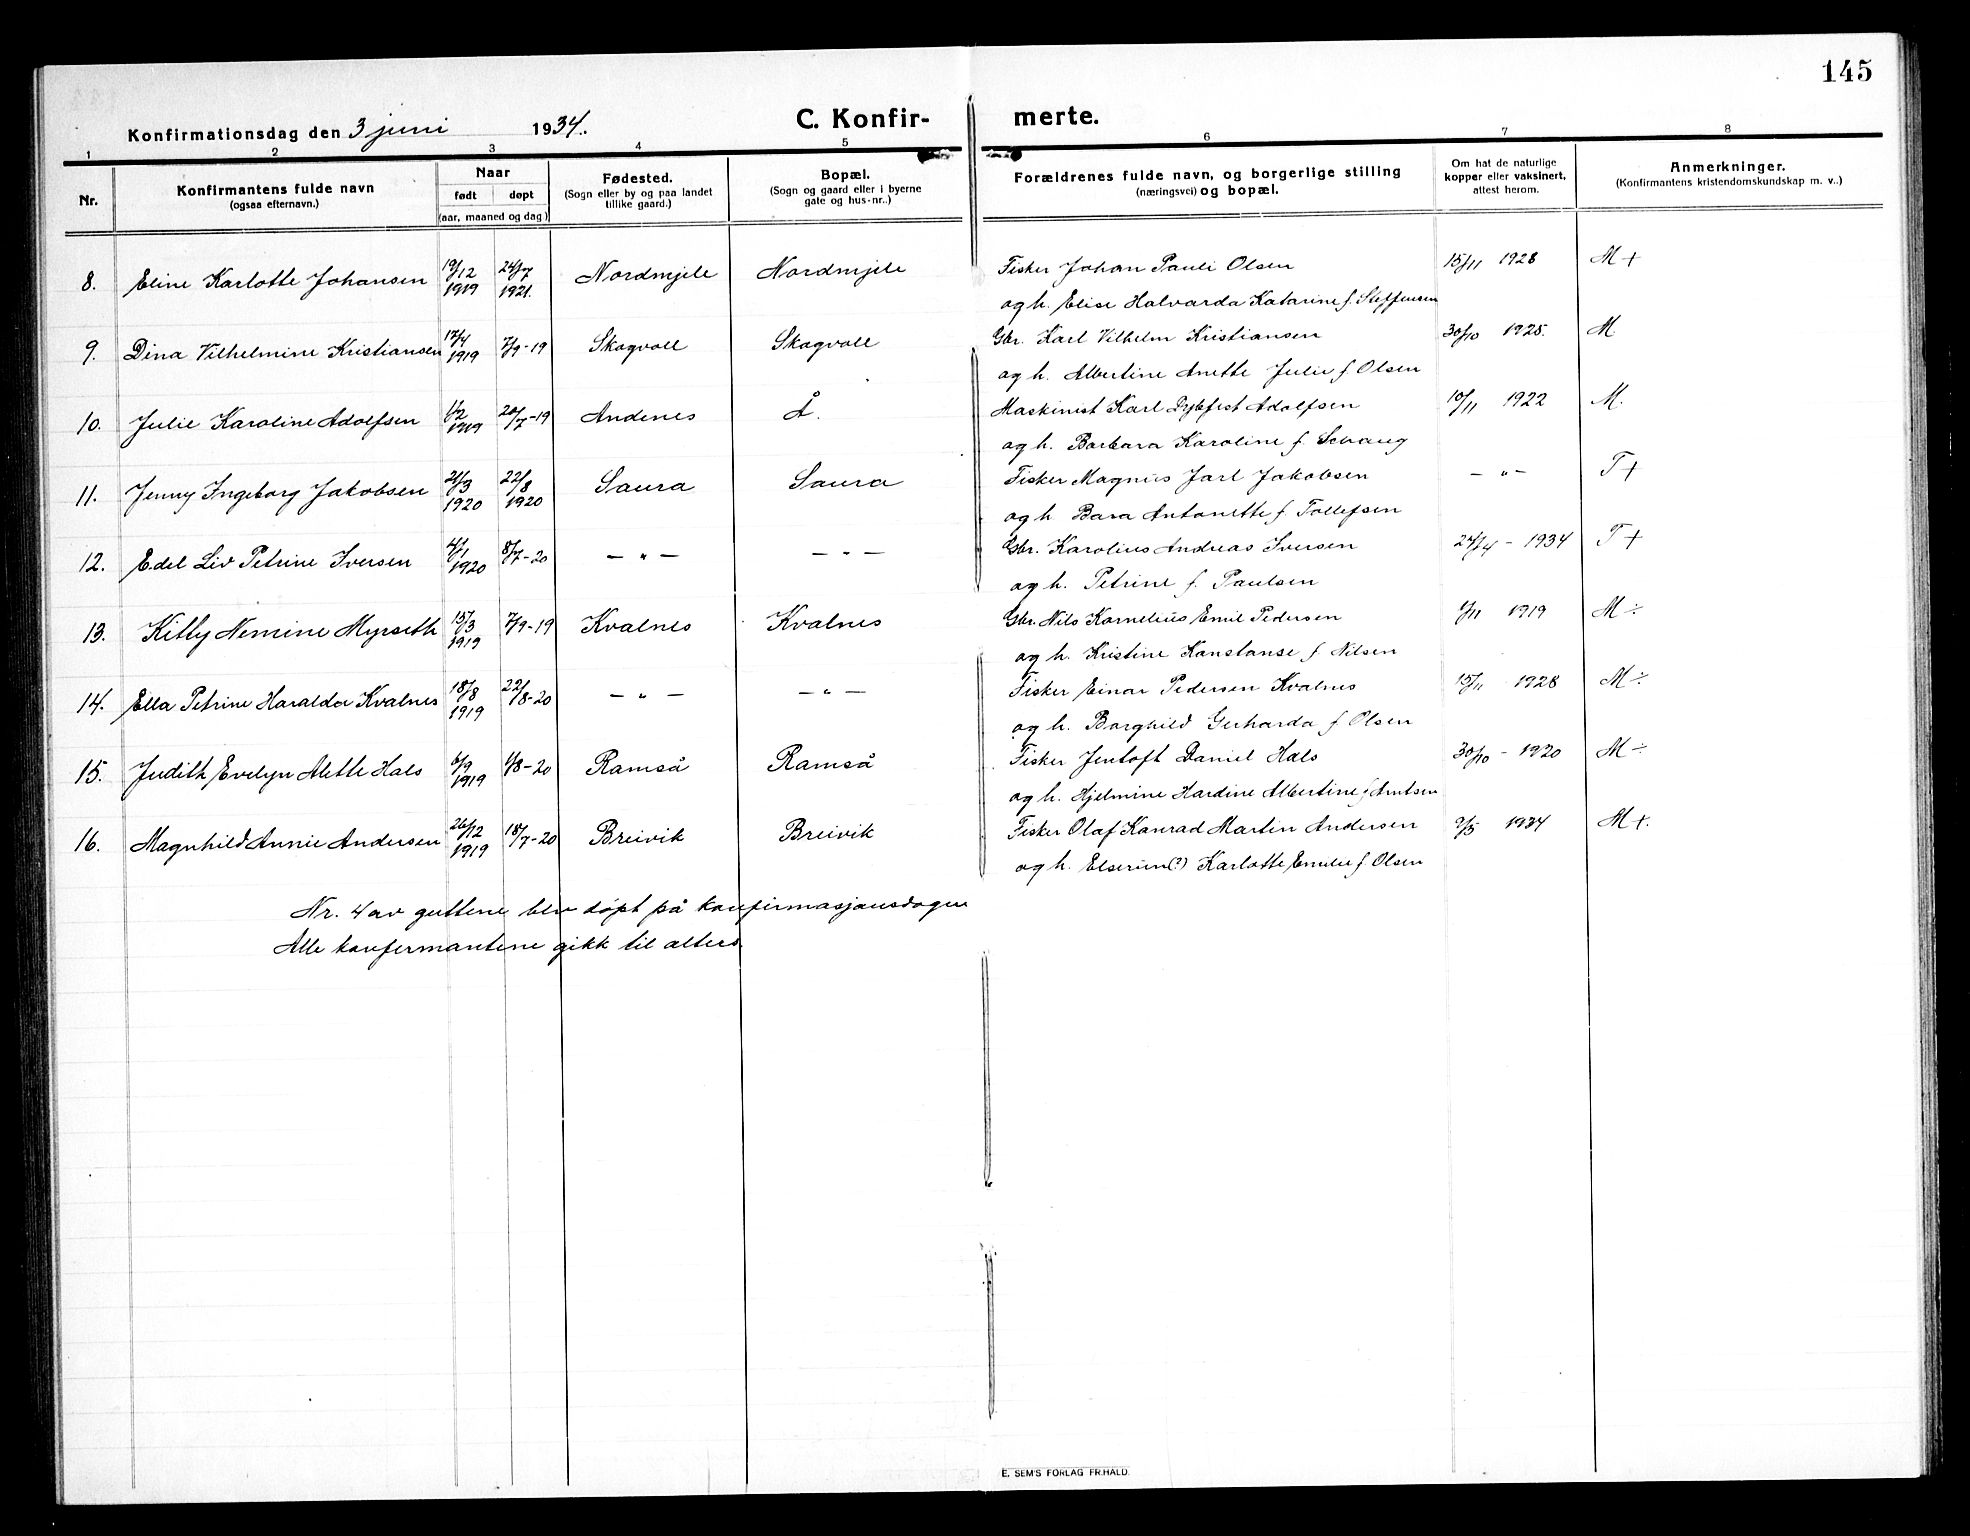 145
C. Konfir- merte.
Konfirmationsdag den 3 juni 1934.
1 2 3 4 5 6 7 8
Nr.
Konfirmantens fulde navn
(ogsaa efternavn.)
Naar
født døpt
(aar, maaned og dag)
Fødested.
(Sogn eller by og paa landet
tillike gaard.)
Bopæl.
(Sogn og gaard eller i byerne
gate og hus-nr.)
Forældrenes fulde navn, og borgerlige stilling
(næringsvei) og bopæl.
Om hat de naturlige
kopper eller vaksinert,
attest herom.
Anmerkninger.
(Konfirmantens kristendomskundskap m. v.)
8. Eline Karlotte Johansen 19/12 1919 24/7 1921. Nordmjele Nordmjele Fisker Johan Pauli Olsen 15/11 1928 M +
og h. Elise Halvarda Katarine f. Steffensen
9. Dina Vilhelmine Kristiansen 17/4 1919 7/9-19 Skogvoll Skogvoll Gbr. Karl Vilhelm Kristiansen 30/10 1925. M
og h. Albertine Anette Julie f. Olsen
10. Julie Karoline Adolfsen 1/2 1919 20/7-19 Andenes Å. Maskinist Karl Dybfest Adolfsen 10/11 1922 M.
og h. Barbara Karoline f. Schaug
11. Jenny Ingeborg Jakobsen 21/3 1920 22/8 1920 Saura Saura Fisker Magnus Jarl Jakobsen — " — T +
og h. Bara Antonette f. Tollefsen
12. Edel Liv Petrine Iversen 4/1 1920 8/7-20 — " — — " — Gbr. Karolius Andreas Iversen 24/4 - 1934 T +
og h. Petrine f. Paulsen
13. Kitty Nemine Myrseth 15/3 1919 7/9-19 Kvalnes Kvalnes Gbr. Nils Kornelius Emil Pedersen 1/11 1919 M ÷
og h. Kristine Konstanse f. Nilsen
14. Ella Petrine Haralda Kvalnes 18/8 1919 22/8-20 — " — — " — Fisker Einar Pedersen Kvalnes 15/11 1928 M ÷
og h. Borghild Gerharda f. Olsen
15. Judith Evelyn Alette Hals 6/9 1919 1/8-20 Ramså Ramså Fisker Jentoft Daniel Hals 30/10 - 1920 M ÷
og h. Hjelmine Hardine Albertine f. Arntsen
16. Magnhild Annie Andersen 26/12 1919 18/7-20 Breivik Breivik Fisker Olaf Konrad Martin Andersen 9/5 1934 M +.
og h. Elserun(?) Karlotte Emilie f. Olsen
Nr. 4 av guttene blev døpt på konfirmasjonsdagen
Alle konfirmantene gikk til alters.
E. SEM'S FORLAG FR.HALD.